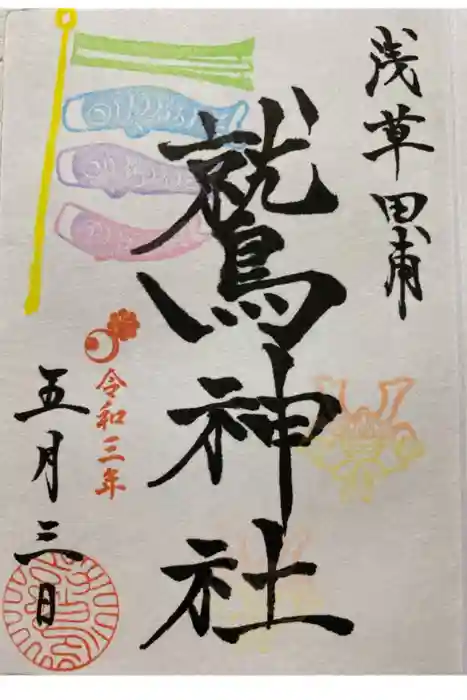 浅草田甫
鷲神社
令和三年
五月三日